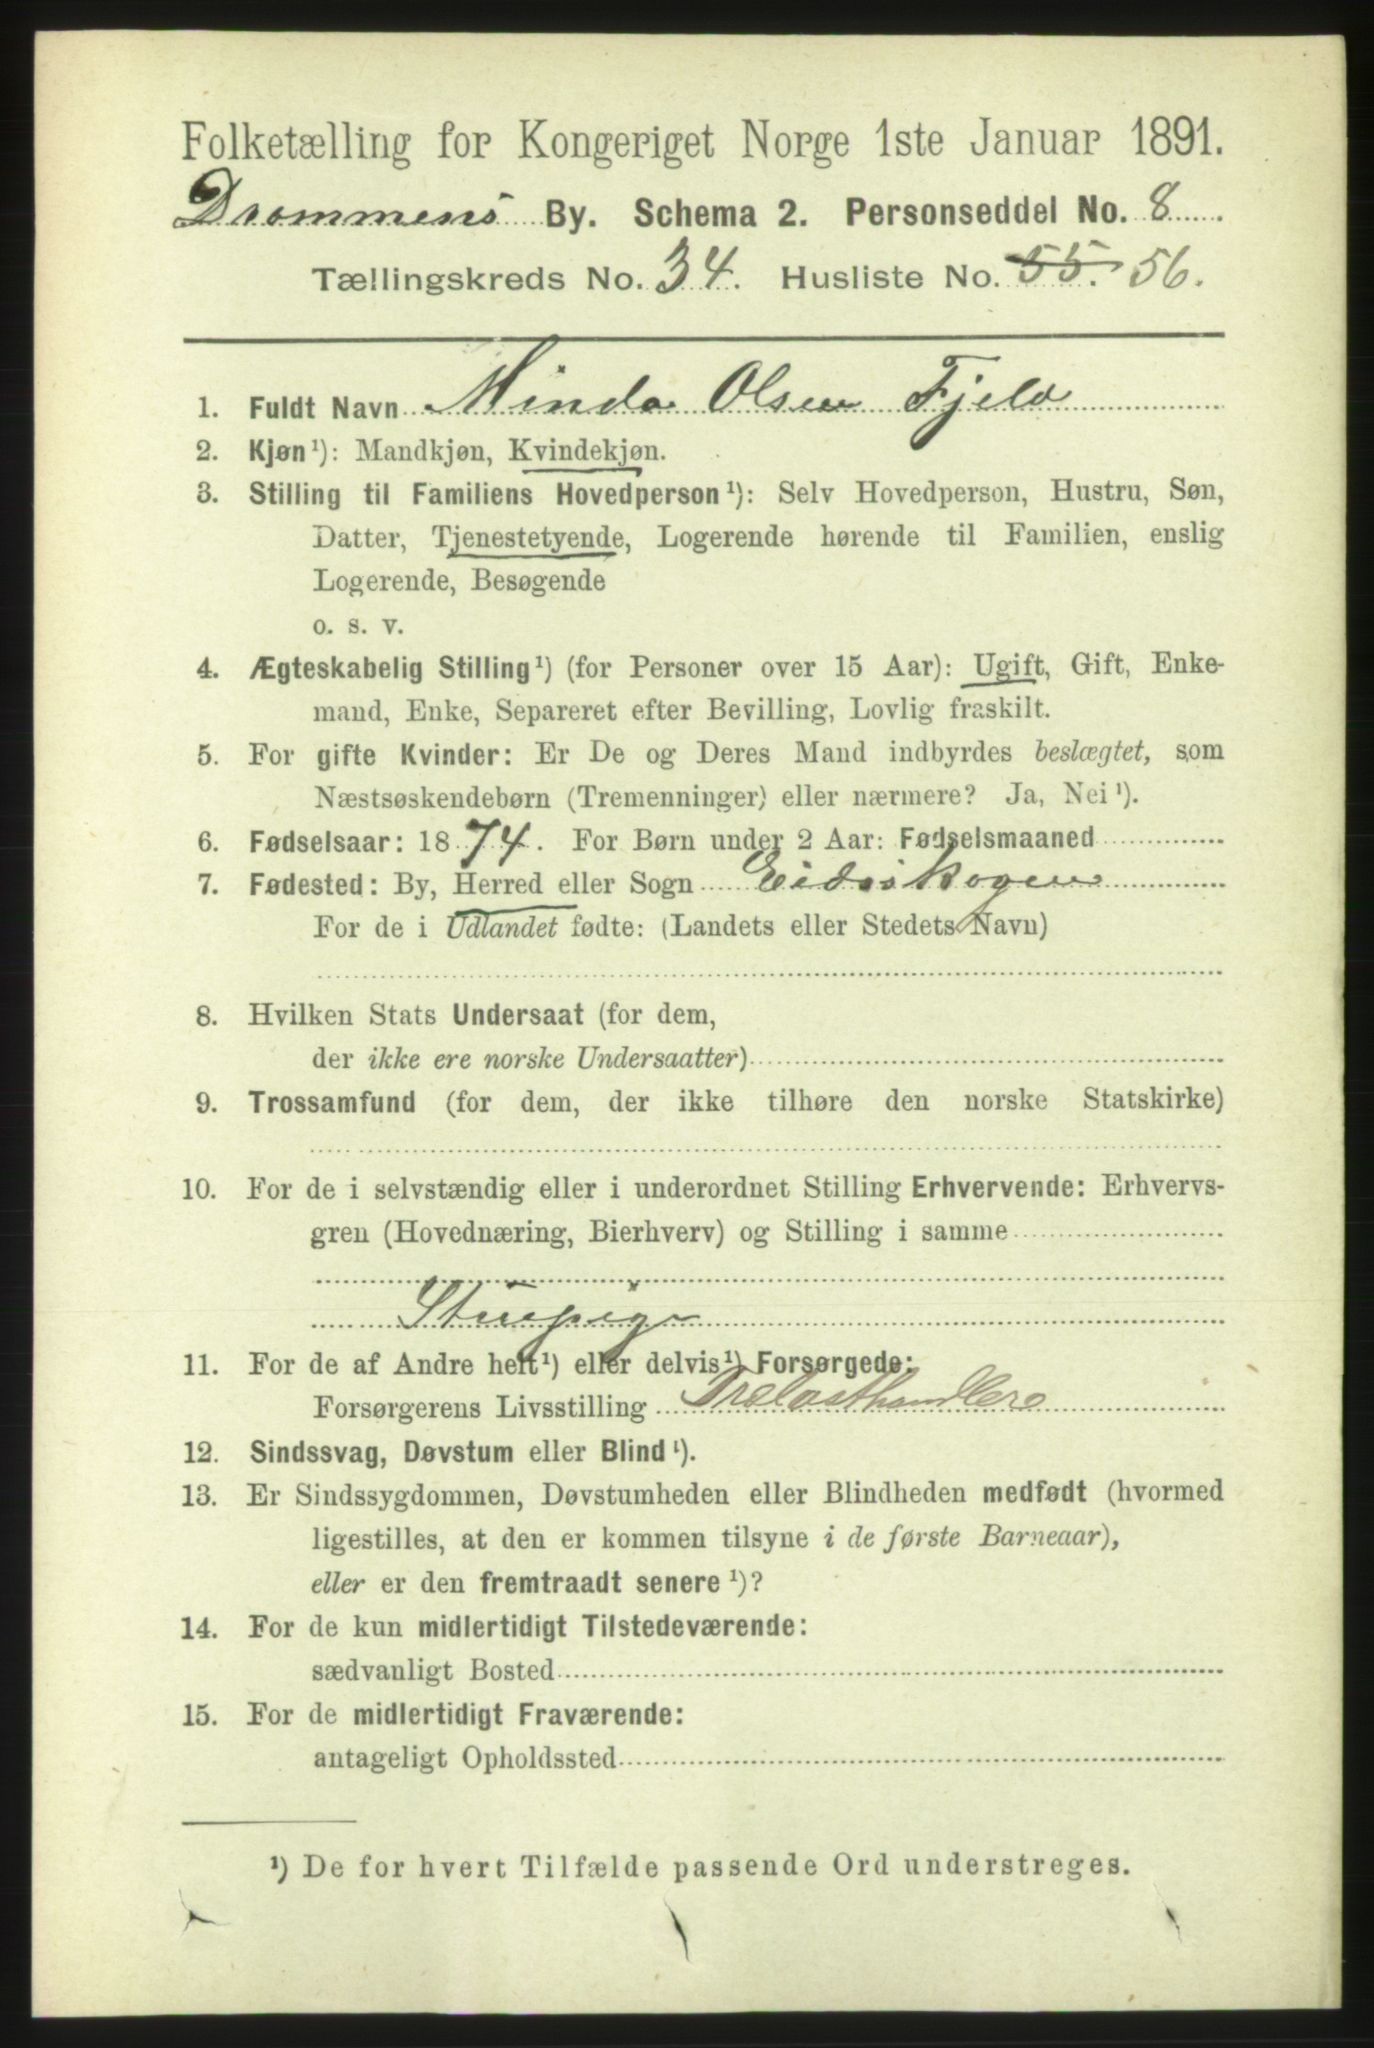 Folketælling for Kongeriget Norge 1ste Januar 1891.
Drammens By. Schema 2. Personseddel No. 8.
Tællingskreds No. 34. Husliste No. 55. 56.
1. Fuldt Navn Minda Olsen Fjeld
2. Kjøn¹): Mandkjøn, Kvindekjøn.
3. Stilling til Familiens Hovedperson¹): Selv Hovedperson, Hustru, Søn,
Datter, Tjenestetyende, Logerende hørende til Familien, enslig
Logerende, Besøgende
o. s. v.
4. Ægteskabelig Stilling¹) (for Personer over 15 Aar): Ugift, Gift, Enke-
mand, Enke, Separeret efter Bevilling, Lovlig fraskilt.
5. For gifte Kvinder: Er De og Deres Mand indbyrdes beslægtet, som
Næstsøskendebørn (Tremenninger) eller nærmere? Ja, Nei¹).
6. Fødselsaar: 1874. For Børn under 2 Aar: Fødselsmaaned
7. Fødested: By, Herred eller Sogn Eidsskogen
For de i Udlandet fødte: (Landets eller Stedets Navn)
8. Hvilken Stats Undersaat (for dem,
der ikke ere norske Undersaatter)
9. Trossamfund (for dem, der ikke tilhøre den norske Statskirke)
10. For de i selvstændig eller i underordnet Stilling Erhvervende: Erhvervs-
gren (Hovednæring, Bierhverv) og Stilling i samme
Stuepige
11. For de af Andre helt¹) eller delvis¹) Forsørgede:
Forsørgerens Livsstilling Trælasthandlere
12. Sindssvag, Døvstum eller Blind¹).
13. Er Sindssygdommen, Døvstumheden eller Blindheden medfødt (hvormed
ligestilles, at den er kommen tilsyne i de første Barneaar),
eller er den fremtraadt senere¹)?
14. For de kun midlertidigt Tilstedeværende:
sædvanligt Bosted
15. For de midlertidigt Fraværende:
antageligt Opholdssted
¹) De for hvert Tilfælde passende Ord understreges.